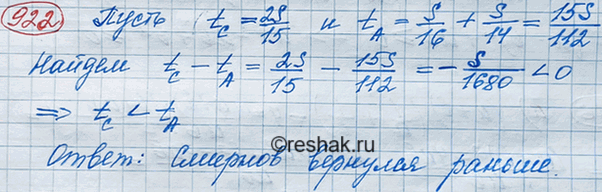 922 Пусть t_C = 2S/15 и t_A = S/16 + S/14 = 15S/112
Найдем t_C - t_A = 2S/15 - 15S/112 = - S/1680 < 0
⇒ t_C < t_A
©reshak.ru
Ответ: Смирнов вернулся раньше.